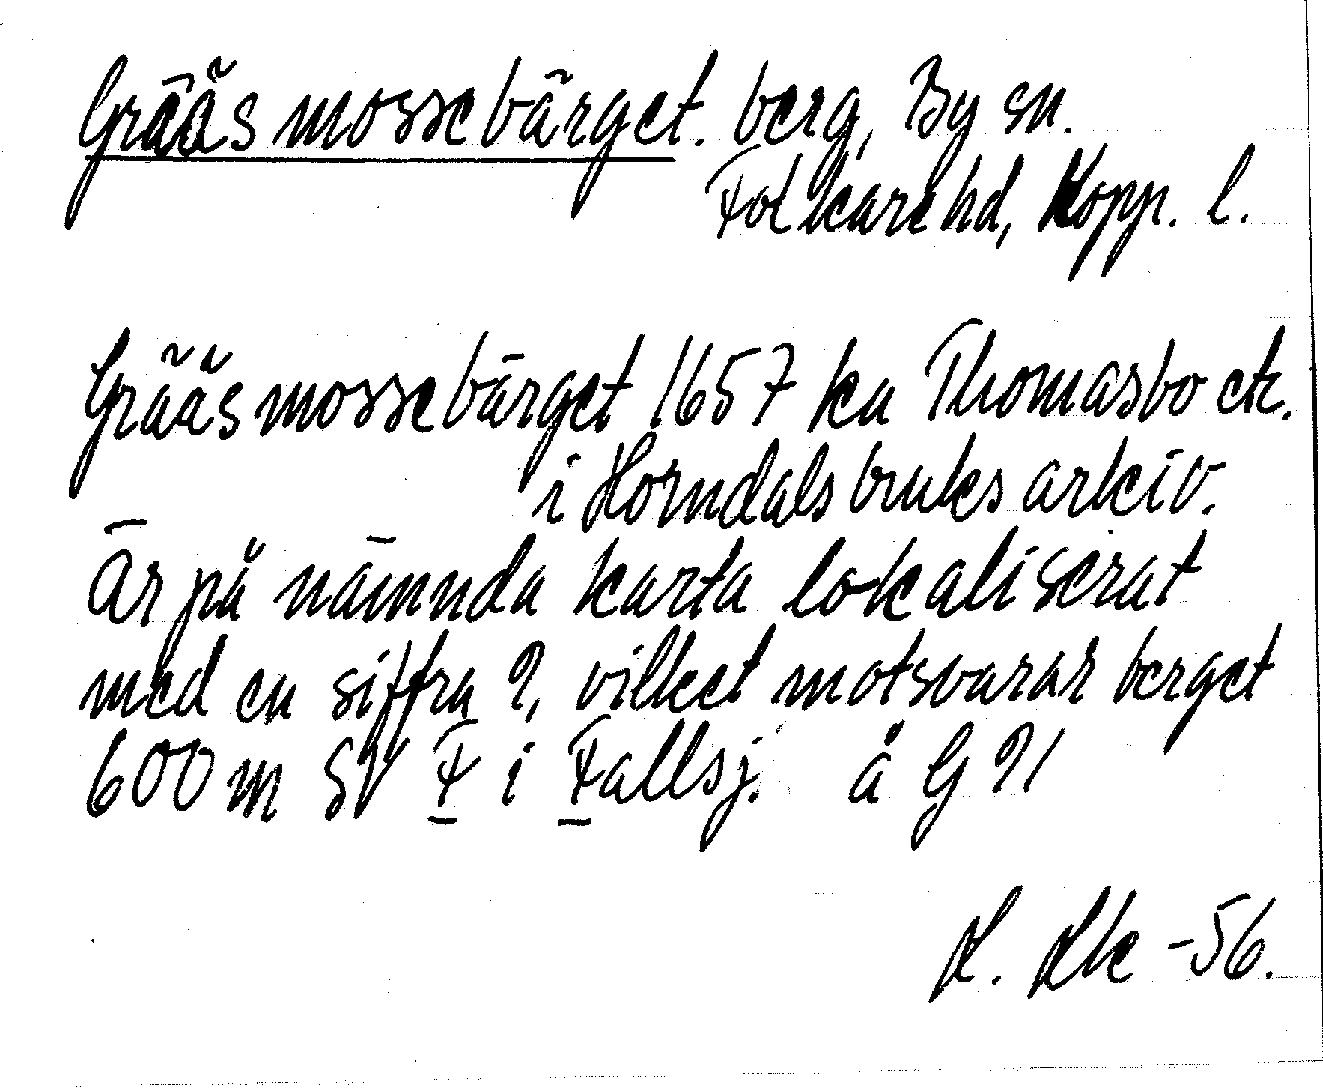 Grååsmossebärget. berg, By sn.
Folkare hd, Kopp. l.
Grååsmossebärget 1657 ka Thomasbo ek.
i Horndals bruks arkiv.
Är på nämnda karta lokaliserat
med en siffra 9, vilket motsvarar berget
600 m SV F i Fallsj. å G 91
-56.